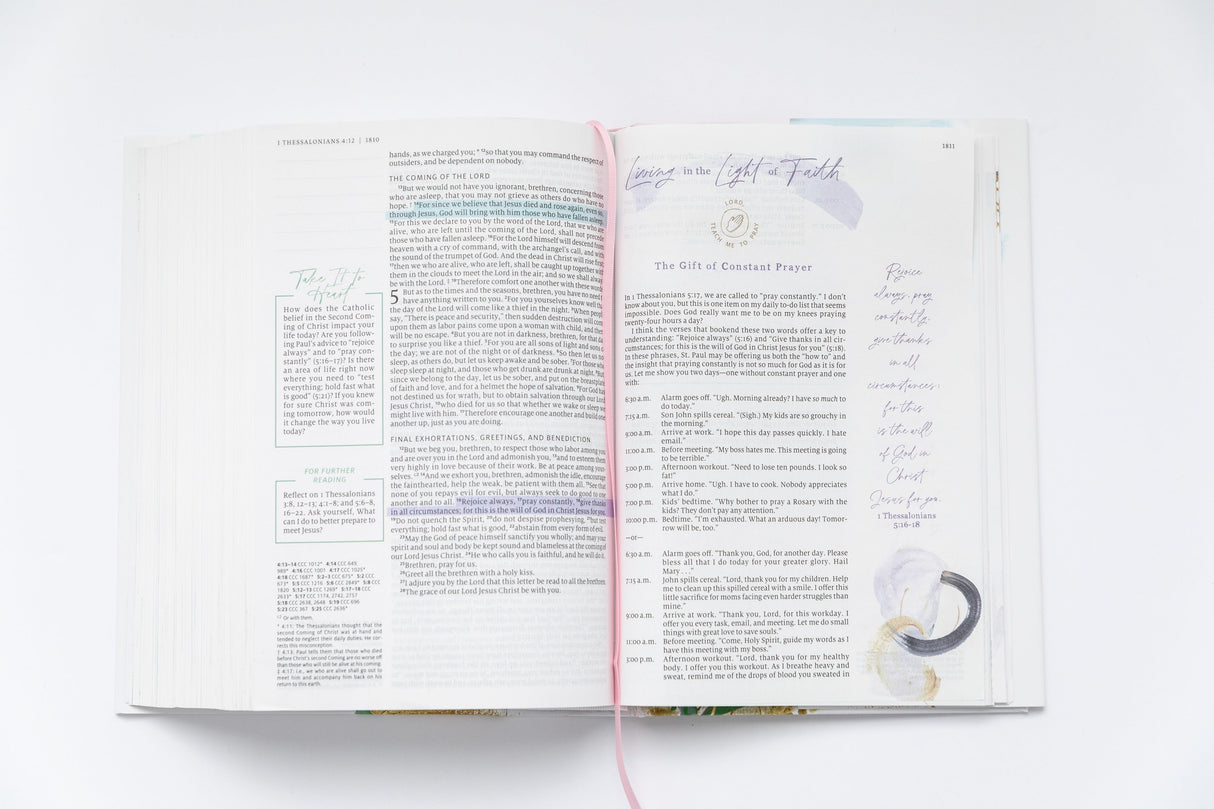 1 THESSALONIANS 4:12 | 1810
Take It to
Heart
How does the Catholic
belief in the Second Com-
ing of Christ impact your
life today? Are you follow-
ing Paul's advice to "rejoice
always" and to "pray con-
stantly" (5:16–17)? Is there
an area of life right now
where you need to "test
everything; hold fast what
is good" (5:21)? If you knew
for sure Christ was com-
ing tomorrow, how would
it change the way you live
today?
FOR FURTHER
READING
Reflect on 1 Thessalonians
3:8, 12–13; 4:1–8; and 5:6–8,
16–22. Ask yourself, What
can I do to better prepare to
meet Jesus?
4:13–14 CCC 1012* 4:14 CCC 649,
989* 4:16 CCC 1001 4:17 CCC 1025*
4:18 CCC 1687* 5:2–3 CCC 675* 5:2 CCC
673* 5:5 CCC 1216 5:6 CCC 2849* 5:8 CCC
1820 5:12–13 CCC 1269* 5:17–18 CCC
2633* 5:17 CCC 1174, 2742, 2757
5:18 CCC 2638, 2648 5:19 CCC 696
5:23 CCC 367 5:25 CCC 2636*
Or with them.
* 4:11: The Thessalonians thought that the
second Coming of Christ was at hand and
tended to neglect their daily duties. He cor-
rects this misconception.
† 4:13: Paul tells them that those who died
before Christ's second Coming are no worse off
than those who will still be alive at his coming.
‡ 4:17: i.e., we who are alive shall go out to
meet him and accompany him back on his
return to this earth.
hands, as we charged you; * 12so that you may command the respect of
outsiders, and be dependent on nobody.
THE COMING OF THE LORD
13But we would not have you ignorant, brethren, concerning those
who are asleep, that you may not grieve as others do who have no
hope. † 14For since we believe that Jesus died and rose again, even so,
through Jesus, God will bring with him those who have fallen asleep.
15For this we declare to you by the word of the Lord, that we who are
alive, who are left until the coming of the Lord, shall not precede
those who have fallen asleep. 16For the Lord himself will descend from
heaven with a cry of command, with the archangel's call, and with
the sound of the trumpet of God. And the dead in Christ will rise first;
17then we who are alive, who are left, shall be caught up together with
them in the clouds to meet the Lord in the air; and so we shall always
be with the Lord. ‡ 18Therefore comfort one another with these words.
5 But as to the times and the seasons, brethren, you have no need to
have anything written to you. 2For you yourselves know well that
the day of the Lord will come like a thief in the night. 3When people
say, "There is peace and security," then sudden destruction will come
upon them as labor pains come upon a woman with child, and there
will be no escape. 4But you are not in darkness, brethren, for that day
to surprise you like a thief. 5For you are all sons of light and sons of
the day; we are not of the night or of darkness. 6So then let us not
sleep, as others do, but let us keep awake and be sober. 7For those who
sleep sleep at night, and those who get drunk are drunk at night. 8But
since we belong to the day, let us be sober, and put on the breastplate
of faith and love, and for a helmet the hope of salvation. 9For God has
not destined us for wrath, but to obtain salvation through our Lord
Jesus Christ, 10who died for us so that whether we wake or sleep we
might live with him. 11Therefore encourage one another and build one
another up, just as you are doing.
FINAL EXHORTATIONS, GREETINGS, AND BENEDICTION
12But we beg you, brethren, to respect those who labor among you
and are over you in the Lord and admonish you, 13and to esteem them
very highly in love because of their work. Be at peace among your-
selves. 14And we exhort you, brethren, admonish the idle, encourage
the fainthearted, help the weak, be patient with them all. 15See that
none of you repays evil for evil, but always seek to do good to one
another and to all. 16Rejoice always, 17pray constantly, 18give thanks
in all circumstances; for this is the will of God in Christ Jesus for you.
19Do not quench the Spirit, 20do not despise prophesying, 21but test
everything; hold fast what is good, 22abstain from every form of evil.
23May the God of peace himself sanctify you wholly; and may your
spirit and soul and body be kept sound and blameless at the coming of
our Lord Jesus Christ. 24He who calls you is faithful, and he will do it.
25Brethren, pray for us.
26Greet all the brethren with a holy kiss.
27I adjure you by the Lord that this letter be read to all the brethren.
28The grace of our Lord Jesus Christ be with you.
1811
Living in the Light of Faith
LORD,
TEACH ME TO PRAY
The Gift of Constant Prayer
In 1 Thessalonians 5:17, we are called to "pray constantly." I don't
know about you, but this is one item on my daily to-do list that seems
impossible. Does God really want me to be on my knees praying
twenty-four hours a day?
I think the verses that bookend these two words offer a key to
understanding: "Rejoice always" (5:16) and "Give thanks in all cir-
cumstances; for this is the will of God in Christ Jesus for you" (5:18).
In these phrases, St. Paul may be offering us both the "how to" and
the insight that praying constantly is not so much for God as it is for
us. Let me show you two days—one without constant prayer and one
with:
6:30 a.m. Alarm goes off. "Ugh. Morning already? I have so much to
do today."
7:15 a.m. Son John spills cereal. "(Sigh.) My kids are so grouchy in
the morning."
9:00 a.m. Arrive at work. "I hope this day passes quickly. I hate
email."
11:00 a.m. Before meeting. "My boss hates me. This meeting is going
to be terrible."
3:00 p.m. Afternoon workout. "Need to lose ten pounds. I look so
fat!"
5:00 p.m. Arrive home. "Ugh. I have to cook. Nobody appreciates
what I do."
7:00 p.m. Kids' bedtime. "Why bother to pray a Rosary with the
kids? They don't pay any attention."
10:00 p.m. Bedtime. "I'm exhausted. What an arduous day! Tomor-
row will be, too."
—or—
6:30 a.m. Alarm goes off. "Thank you, God, for another day. Please
bless all that I do today for your greater glory. Hail
Mary . . ."
7:15 a.m. John spills cereal. "Lord, thank you for my children. Help
me to clean up this spilled cereal with a smile. I offer this
little sacrifice for moms facing even harder struggles than
mine."
9:00 a.m. Arrive at work. "Thank you, Lord, for this workday. I
offer you every task, email, and meeting. Let me do small
things with great love to save souls."
11:00 a.m. Before meeting. "Come, Holy Spirit, guide my words as I
have this meeting with my boss."
3:00 p.m. Afternoon workout. "Lord, thank you for my healthy
body. I offer you this workout. As I breathe heavy and
sweat, remind me of the drops of blood you sweated in
Rejoice
always, pray
constantly;
give thanks
in all
circumstances;
for this
is the will
of God in
Christ
Jesus for you.
1 Thessalonians
5:16-18